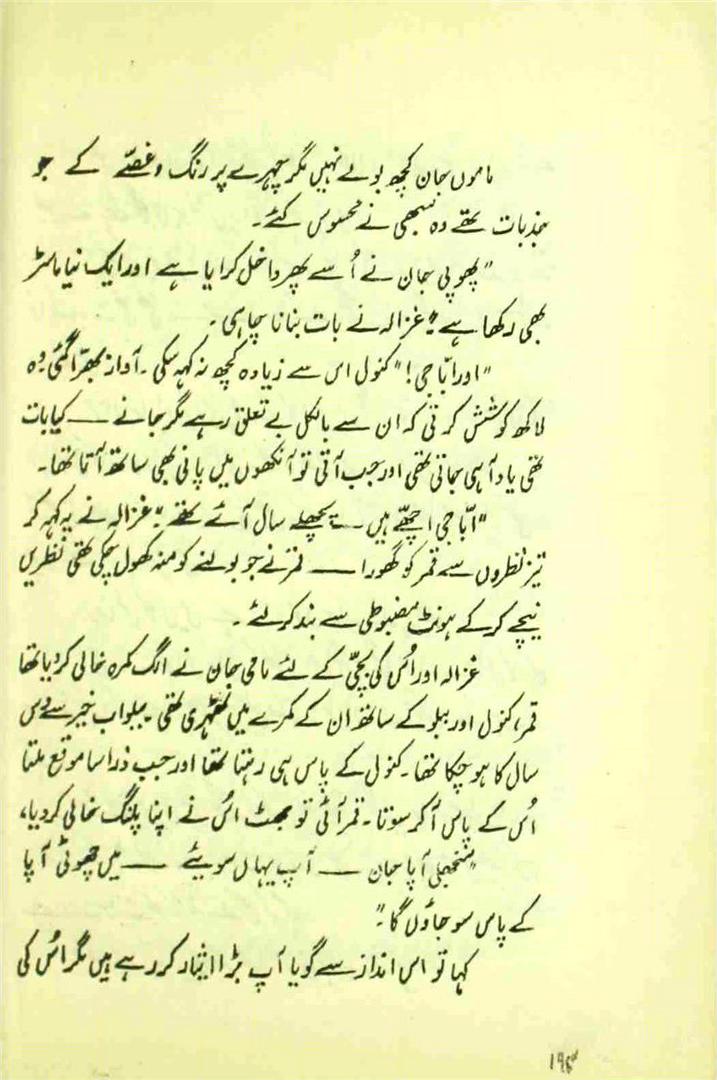 ماموں جان کچھ بولے نہیں مگر چہرے پر رنگ و غصّے کے جو
جذبات تھے وہ سبھی نے محسوس کئے۔
”پھوپی جان نے اُسے پھر داخل کرایا ہے اور ایک نیا ماسٹر
بھی رکھا ہے“ غزالہ نے بات بنانا چاہی۔
”اور ابّا جی!“ کنول اس سے زیادہ کچھ نہ کہہ سکی۔ آواز بھرّا گئی۔ وہ
لاکھ کوشش کرتی کہ ان سے بالکل بے تعلق رہے مگر جانے — کیا بات
تھی یاد آ ہی جاتی تھی اور جب آتی تو آنکھوں میں پانی بھی ساتھ آتا تھا۔
”ابّا جی اچھّے ہیں — پچھلے سال آئے تھے“ غزالہ نے یہ کہہ کر
تیز نظروں سے قمر کو گھورا — قمر نے جو بولنے کو منہ کھول چکی تھی نظریں
نیچے کرکے ہونٹ مضبوطی سے بند کر لئے۔
غزالہ اور اُس کی بچّی کے لئے مامی جان نے الگ کمرہ خالی کر دیا تھا
قمر، کنول اور ببلو کے ساتھ ان کے کمرے میں ٹھہری تھی۔ ببلو اب خیر سے دس
سال کا ہو چکا تھا۔ کنول کے پاس ہی رہتا تھا اور جب ذرا سا موقع ملتا
اُس کے پاس آ کر سوتا۔ قمر آئی تو جھٹ اُس نے اپنا پلنگ خالی کر دیا،
”منجھلی آپا جان — آپ یہاں سوئیے — میں چھوٹی آپا
کے پاس سو جاؤں گا۔“
کہا تو اس انداز سے گویا آپ بڑا ایثار کر رہے ہیں مگر اُس کی